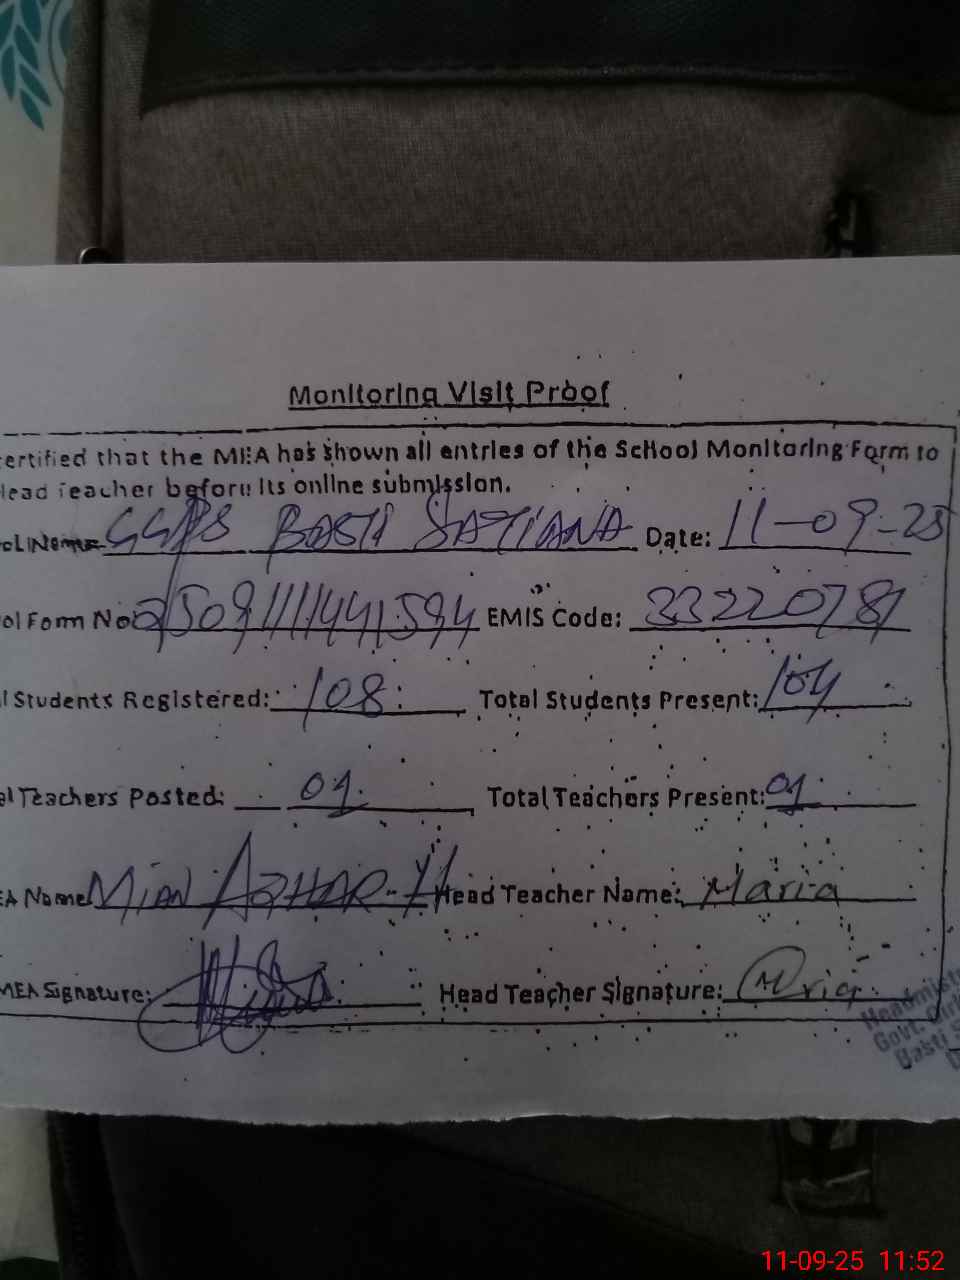 Monitoring Visit Proof
ertified that the MEA has shown all entries of the School Monitoring Form to
Head Teacher before its online submission.
ol Name GGPS BASTI SATIANA Date: 11-09-25
ol Form No 2509111441594 EMIS Code: 33220781
l Students Registered: 108 Total Students Present: 104
al Teachers Posted: 01 Total Teachers Present: 01
EA Name MIAN AZHAR Head Teacher Name: Maria
MEA Signature: Head Teacher Signature: Maria
Headmist
Govt. Girl
Basti S
11-09-25 11:52